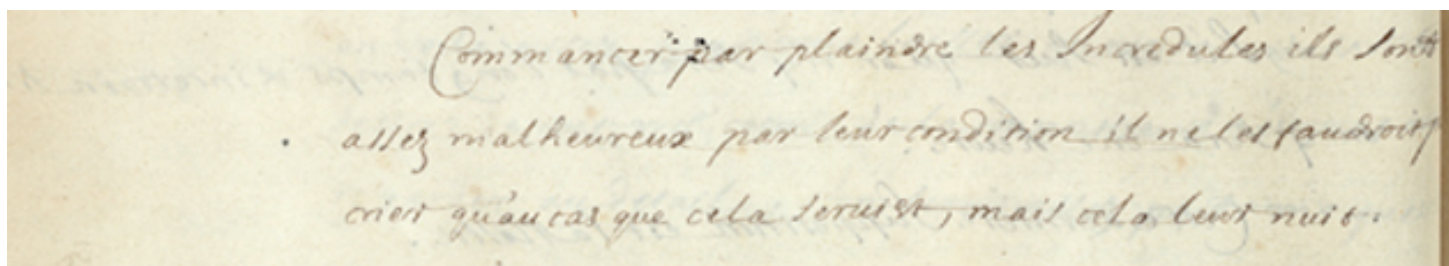 Commancer par plaindre les Incredules ils sont
assez malheureux par leur condition il ne les faudroit
crier qu'au cas que cela seruist, mais cela leur nuit.